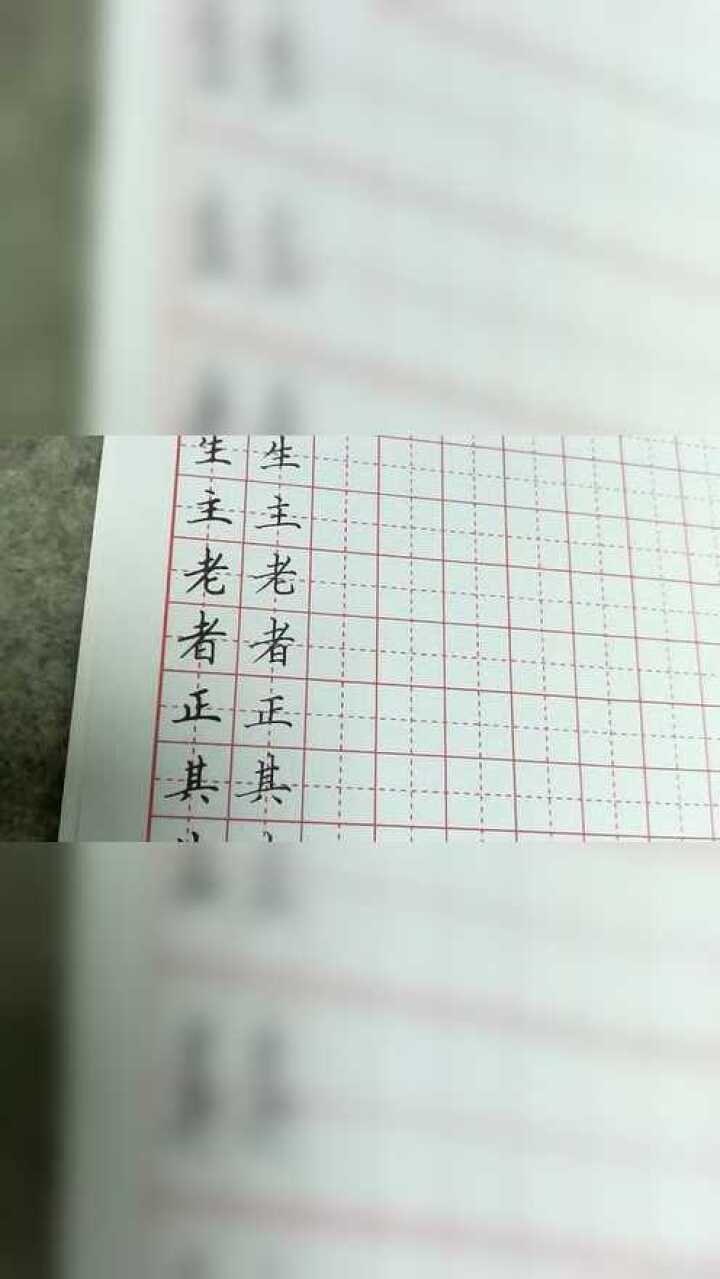 生 生
主 主
老 老
者 者
正 正
其 其